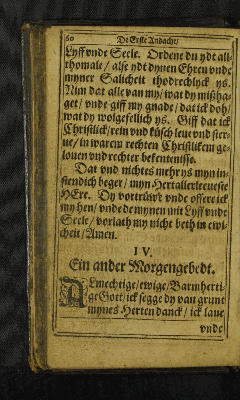 60 De Erste Andacht/
Lyff vnde Seele. Ordene du ydt all-
thomale/ alse ydt dynen Ehren vnde
myner Salicheit thodrechlyck ys.
Nim dat alle van my/ wat dy mißha-
get/ vnde giff my gnade/ dat ick doh/
wat dy wolgefellich ys. Giff dat ick
Christlick/ rein vnd küsch leue vnd ster-
ue/ in warem rechten Christlikem ge-
louen vnd rechter bekentenisse.
Dat vnd nichtes mehr ys myn in-
stendich beger/ myn Hertallerleueste
HEre. Dy vortruwe vnde offere ick
my hen/ vnde de mynen mit Lyff vnde
Seele/ vorlath my nicht beth in ewi-
cheit/ Amen.
IV.
Ein ander Morgengebedt.
ALmechtige/ ewige/ Barmherti-
ge Gott/ ick segge dy van grunt
mynes Herten danck/ ick laue
vnde